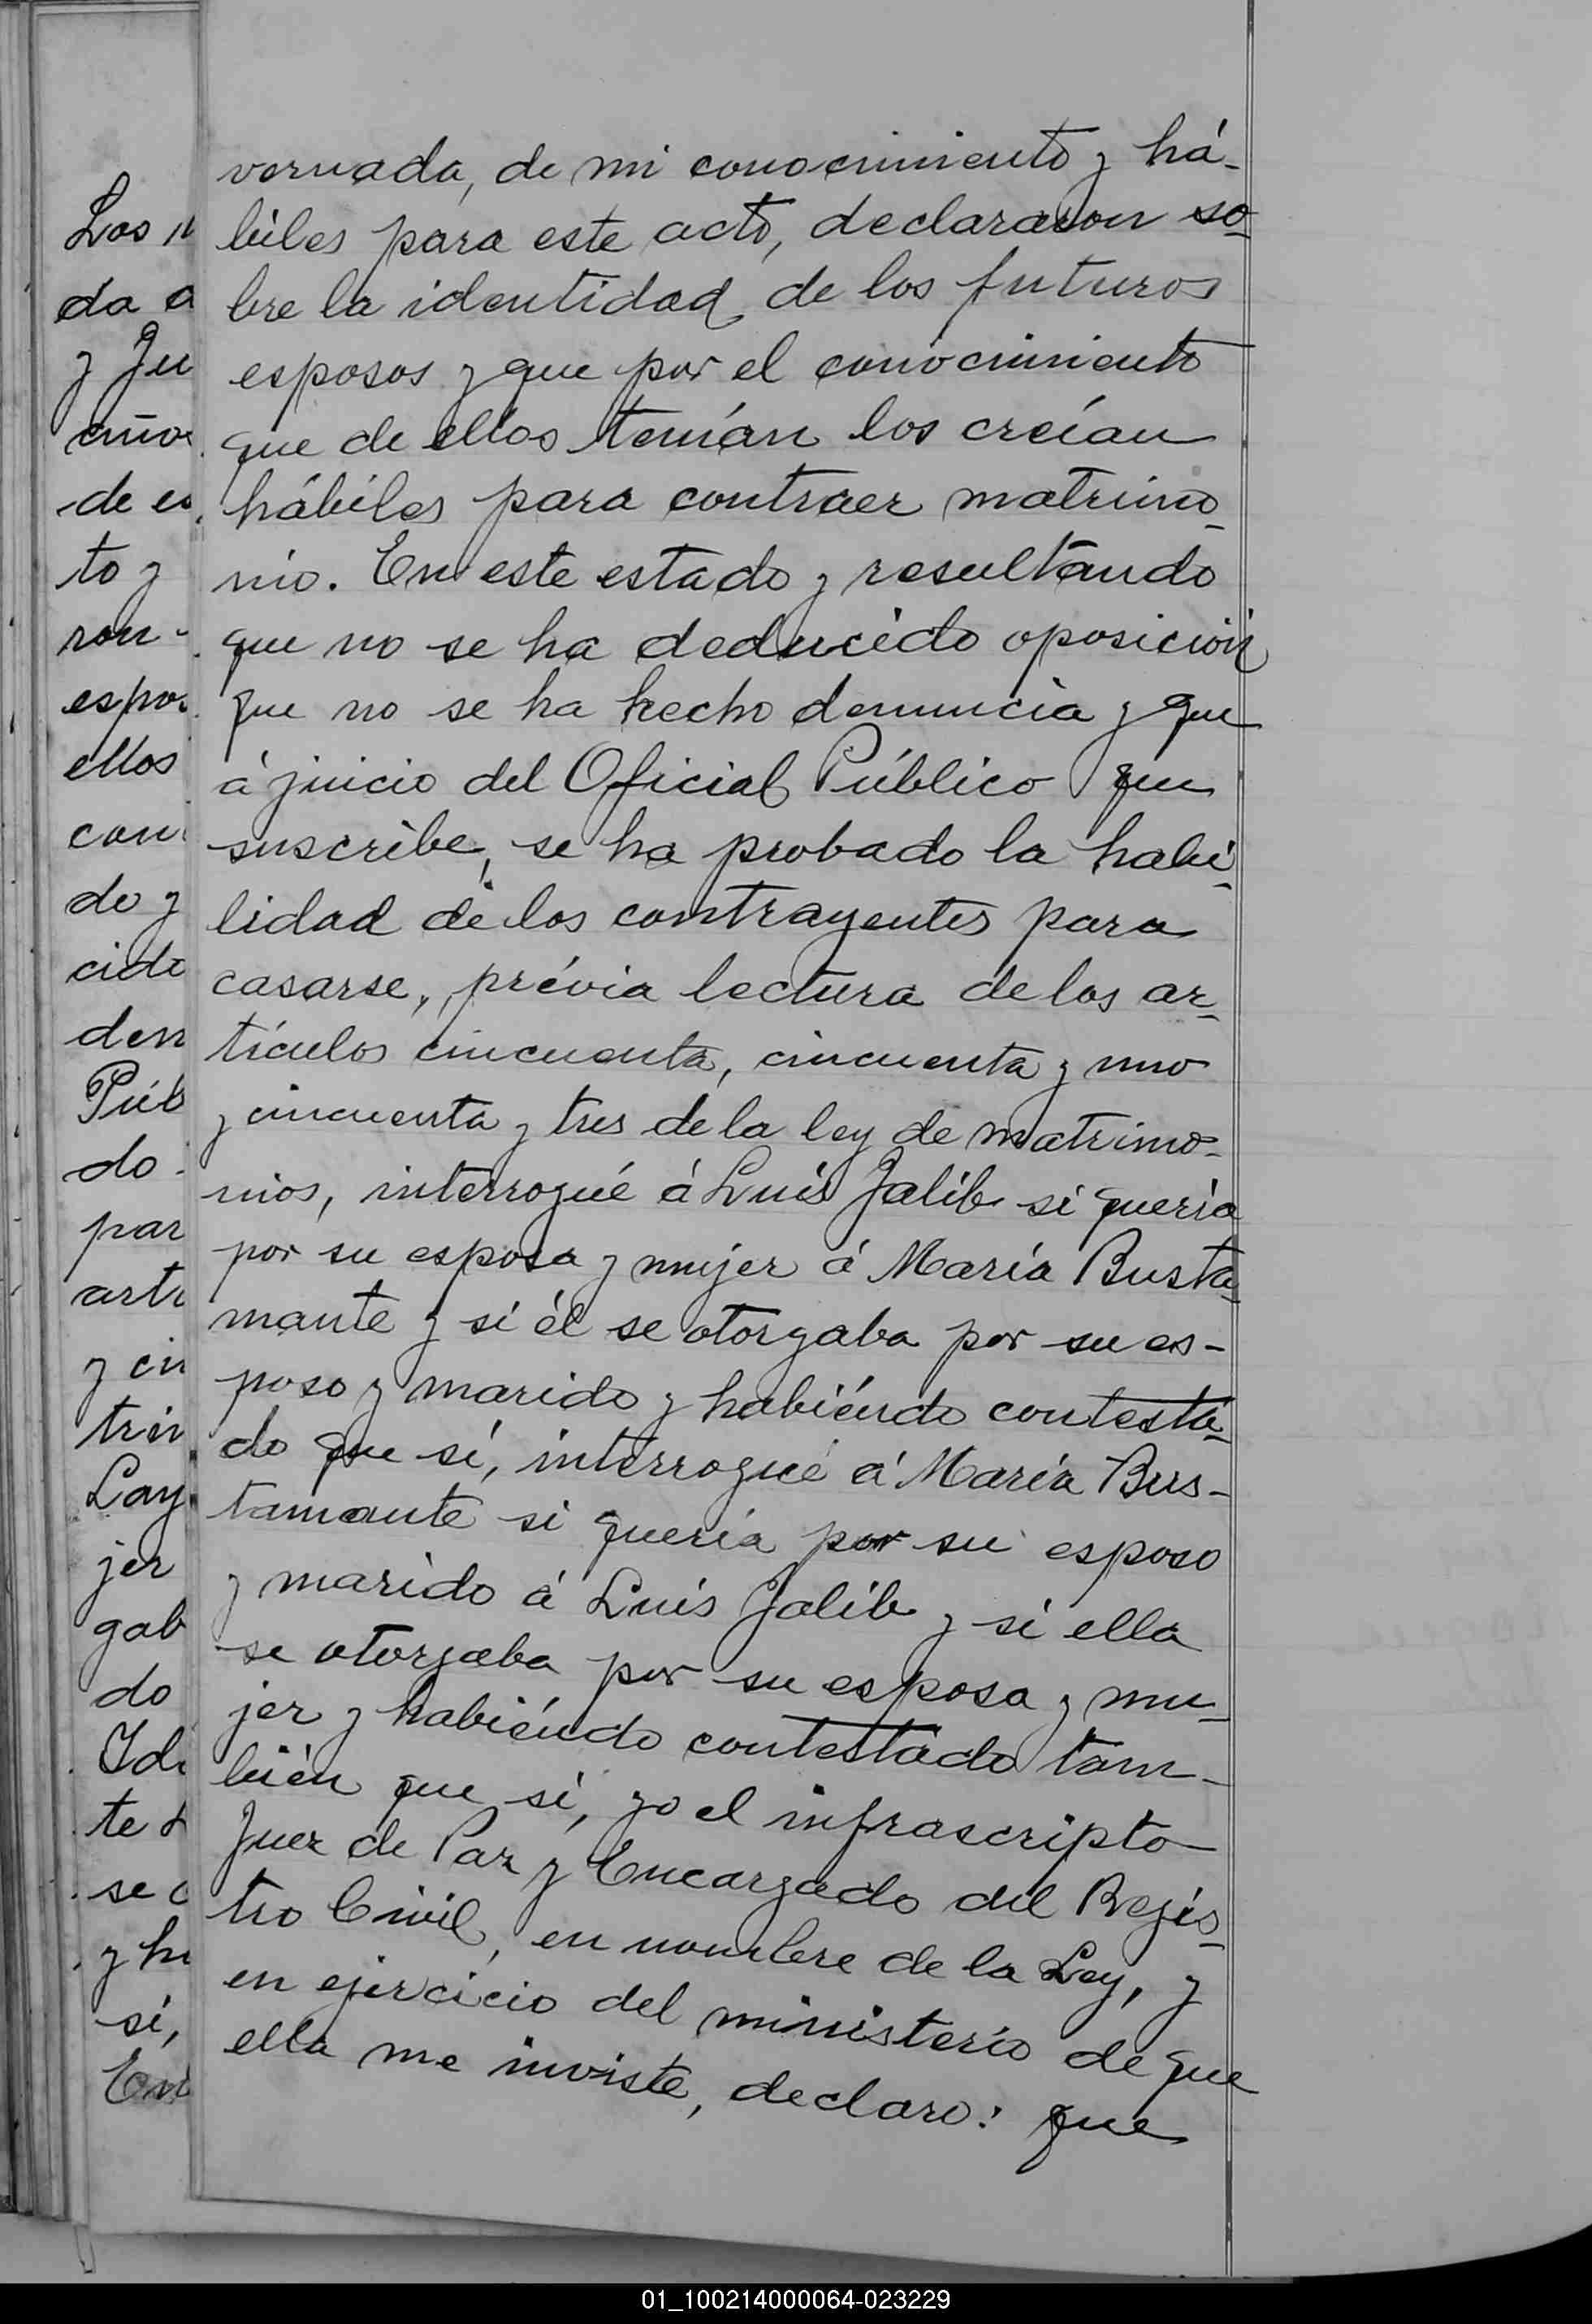 vernada, de mi conocimiento y há-
biles para este acto, declararon so-
bre la identidad de los futuros
esposos y que por el conocimiento
que de ellos tenían los creían
hábiles para contraer matrimo-
nio. En este estado y resultando
que no se ha deducido oposición
que no se ha hecho denuncia y que
á juicio del Oficial Público que
suscribe, se ha probado la habi-
lidad de los contrayentes para
casarse, prévia lectura de los ar-
tículos cincuenta, cincuenta y uno
y cincuenta y tres de la ley de matrimo-
nios, interrogué á Luis Jalib si quería
por su esposa y mujer á María Busta-
mante y si él se otorgaba por su es-
poso y marido y habiéndo contesta-
do que sí, interrogué á María Bus-
tamante si quería por su esposo
y marido á Luis Jalib y si ella
se otorgaba por su esposa y mu-
jer y habiéndo contestado tam-
bién que sí, yo el infrascripto
Juez de Paz y Encargado del Regis-
tro Civil, en nombre de la Ley, y
en ejercicio del ministerio de que
ella me inviste, declaro: que
Los
da a
y Ju
años
de es
to y
ron
espos
ellos
con
do y
cido
den
Púb
do
par
artí
y cin
trim
Lay
jer
gab
do
Idi
te
se
y ha
sí,
En
01_100214000064-023229